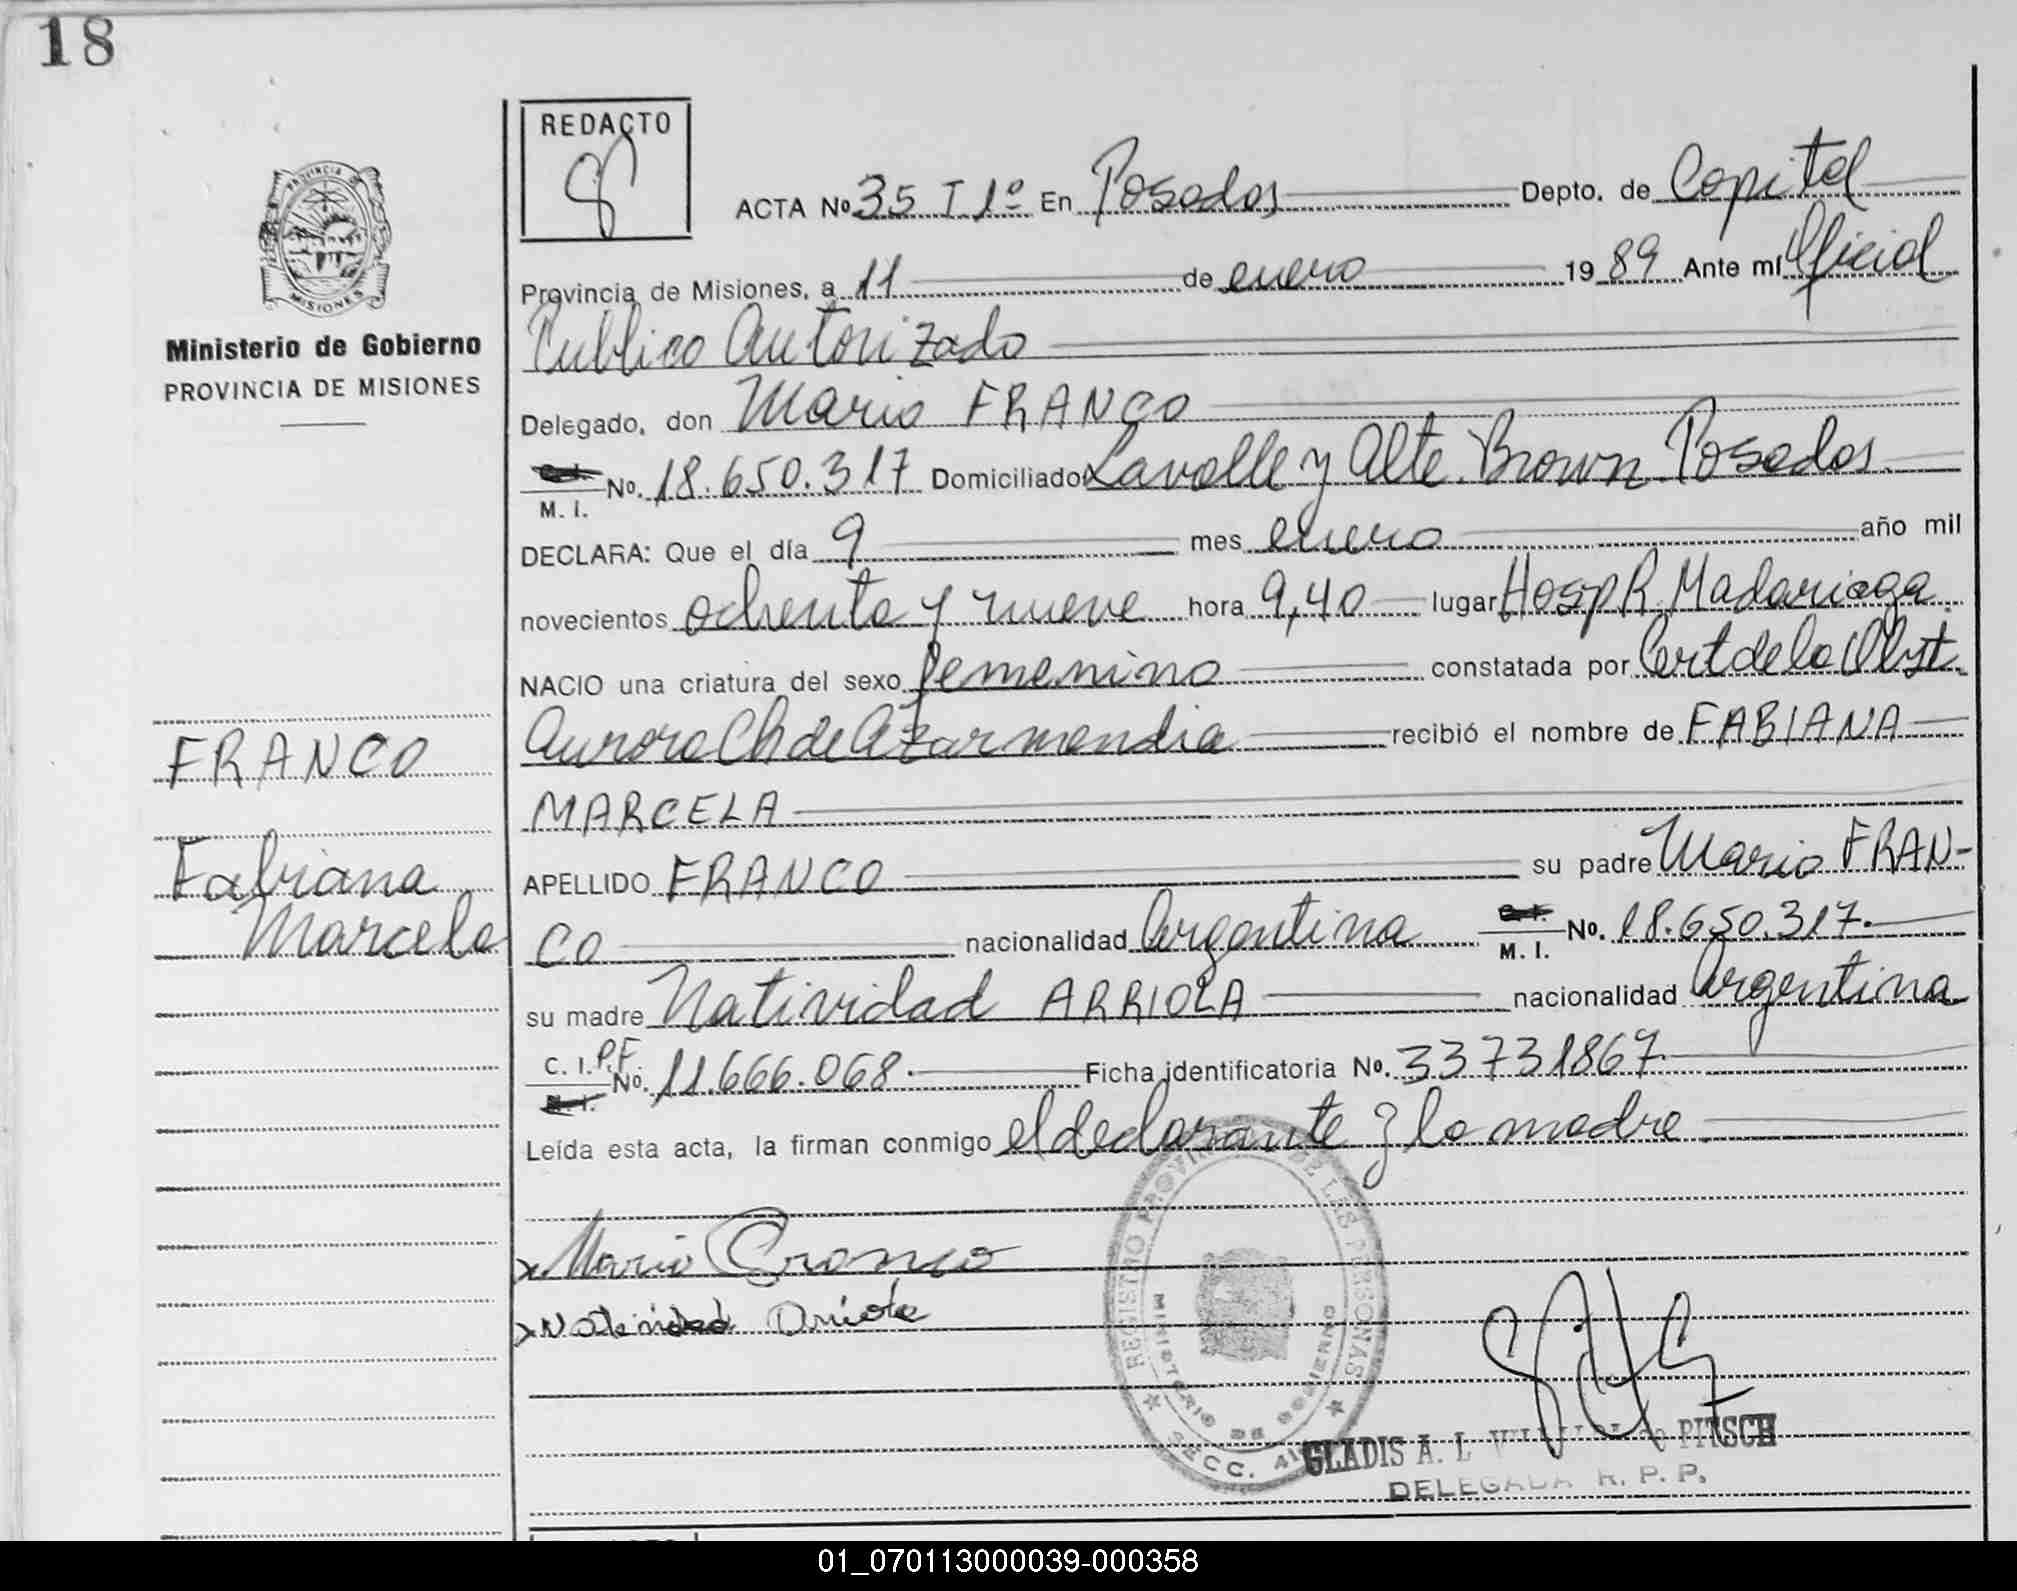 18
REDACTO
ACTA Nº 35 T 1º En Posadas Depto. de Capital
Provincia de Misiones, a 11 de enero 1989 Ante mí Oficial
Publico Autorizado
Delegado, don Mario FRANCO
C. I.
M. I. No. 18.650.317 Domiciliado Lavalle y Alte. Brown. Posadas.
DECLARA: Que el día 9 mes enero año mil
novecientos ochenta y nueve hora 9,40 lugar Hosp R. Madariaga.
NACIO una criatura del sexo femenino constatada por Cert de la Obst.
Aurora Ch de Azarmendia recibió el nombre de FABIANA
MARCELA
APELLIDO FRANCO su padre Mario FRAN-
CO nacionalidad Argentina M. I. No. 18.650.317.
su madre Natividad ARRIOLA nacionalidad Argentina
C. I. P.F. No. 11.666.068. Ficha identificatoria No. 33731867.
Leída esta acta, la firman conmigo el declarante y la madre.
Mario Franco
Natividad Arriola
PROVINCIA DE
MISIONES
Ministerio de Gobierno
PROVINCIA DE MISIONES
FRANCO
Fabiana
Marcela
REGISTRO PROVINCIAL DE LAS PERSONAS
MINISTERIO DE GOBIERNO
SECC.
GLADIS A. L. de PITSCH
DELEGADA R. P. P.
01_070113000039-000358